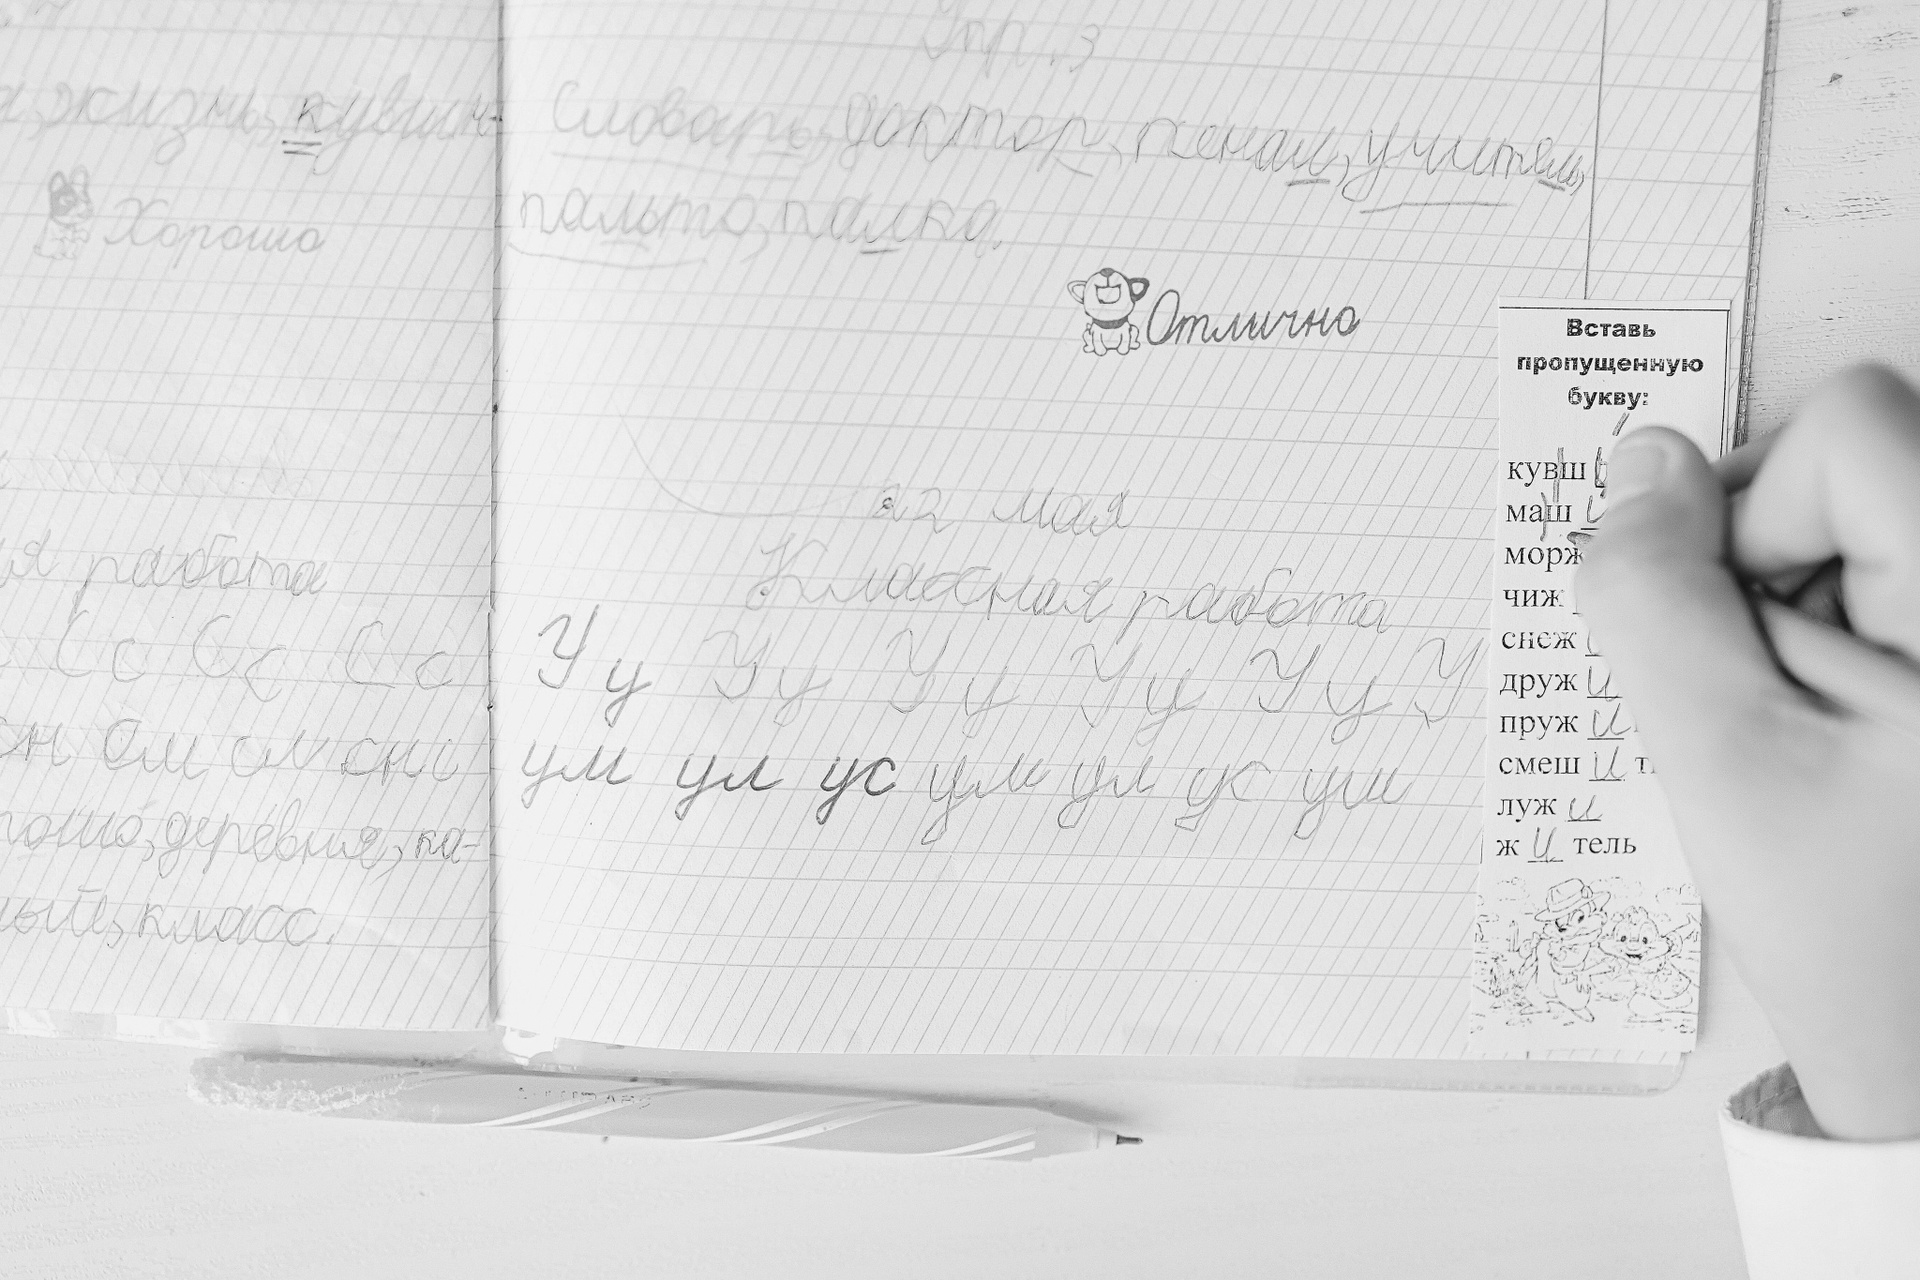 жизнь, кувшин-
Хорошо
работа
Сс Сс Сс
ом
деревня, ка-
класс.
Упр. 3
Словарь, доктор, пенал, учитель,
пальто, палка.
Отлично
22 мая
Классная работа
У у У у У у У у У у У
ум ул ус ум ул ус уш
Вставь
пропущенную
букву:
кувш
маш и
морж
чиж
снеж
друж и
пруж и
смеш и
луж и
ж и тель